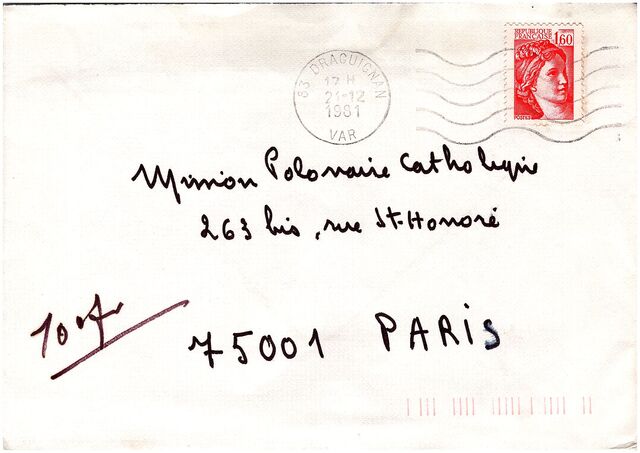 REPUBLIQUE
FRANÇAISE
1,60
83 DRAGUIGNAN
17 H
21-12
1981
VAR
Mission Polonaise Catholique
263 bis, rue St-Honoré
75001 PARIS